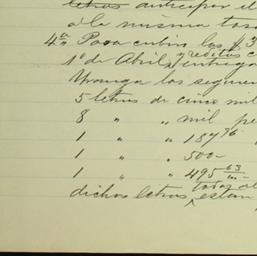 letras anticipar el
a la misma tasa
4ª Para cubrir los $3
1º de Abril, entrega
Uranga las siguien
5 letras de cinco mil
8 " " mil pe
1 " " 187 76
1 " " 500 -
1 " " 495 63
dichas letras todas estan